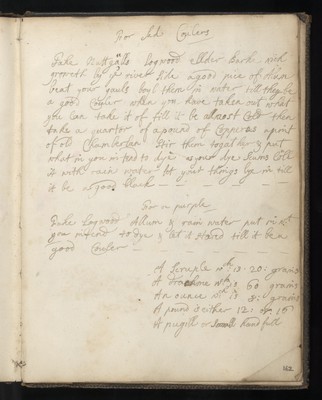 For Sad Coulers
Take Nuttgalls Logwood Ellder Bark wich
groweth by ye river side a good pice of Alum
beat your gauls boyl them in water till they be
a good Couler when you have taken out what
you can take it of fill it be allmost Cold then
take a quarter of a pound of Copperas a pint
of old Chamberlan Stir them together & put
what in you intend to dye as your dye
it with rain water let your things lye in till
it be a good black
For a purple
Take Logwood Allum & rain water put in wt
you intend to dye & let it stand till it be a
good Couler
A Scruple wch is 20: grains
A drachme wch is 60 grains
An ounce wch is 8: grains
A pound is either 12: or 16
A pugill or Small hand full
162